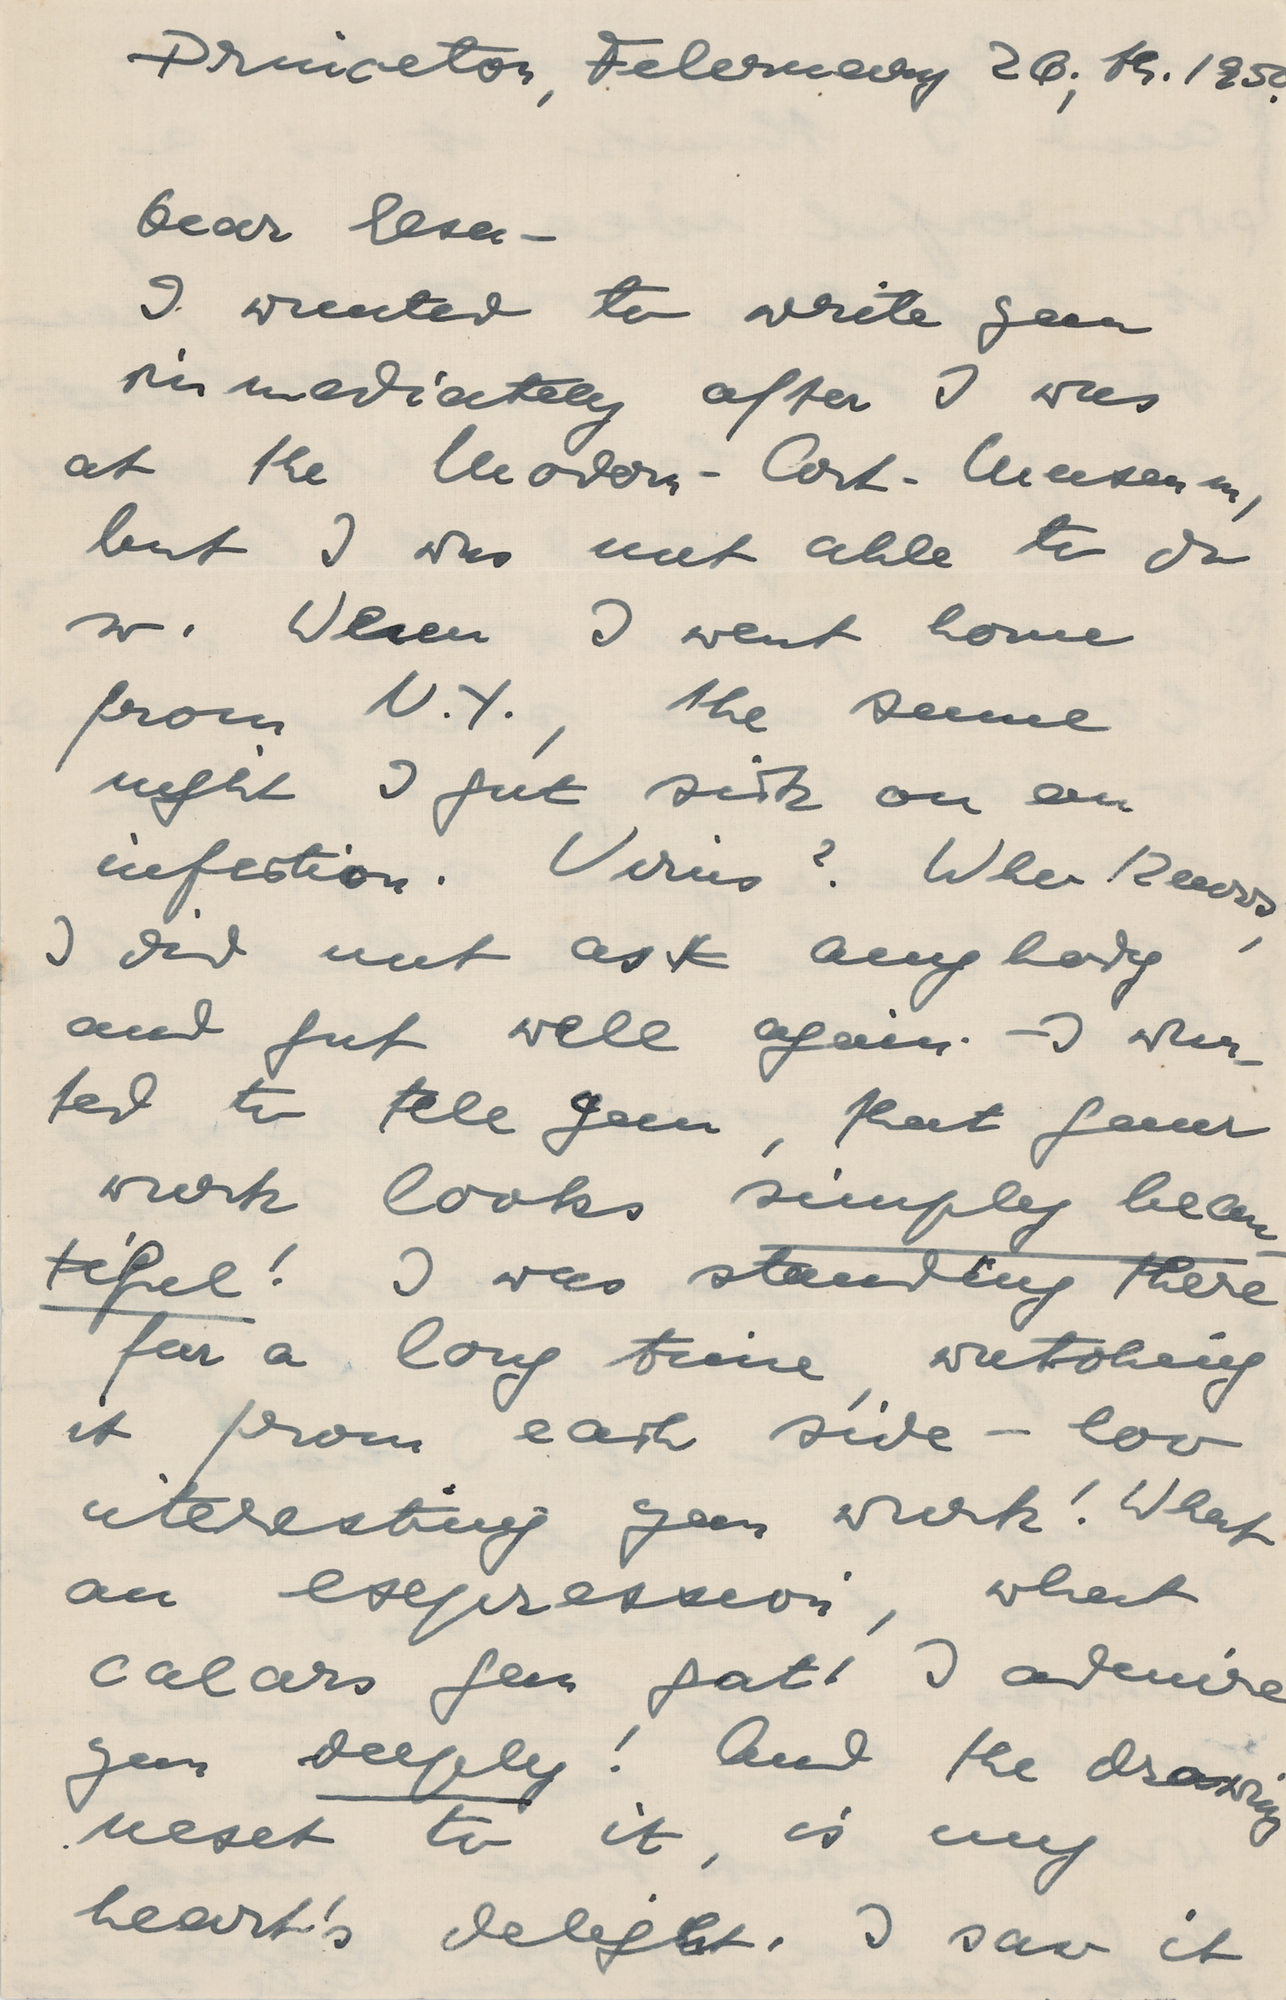 Princeton, February 26, th. 1950.
Dear Esea-
I wanted to write you
immediately after I was
at the Modern-Art-Museum,
but I was not able to do
so. When I went home
from N.Y., the same
night I got sick on an
infection. Virus? Who knows,
I did not ask anybody
and got well again. -I wan-
ted to tell you, that your
work looks simply beau-
tiful! I was standing there
for a long time, watching
it from each side - how
interesting you work! What
an expression, what
colors you got! I admire
you deeply! And the drawing
next to it, is my
heart's delight. I saw it